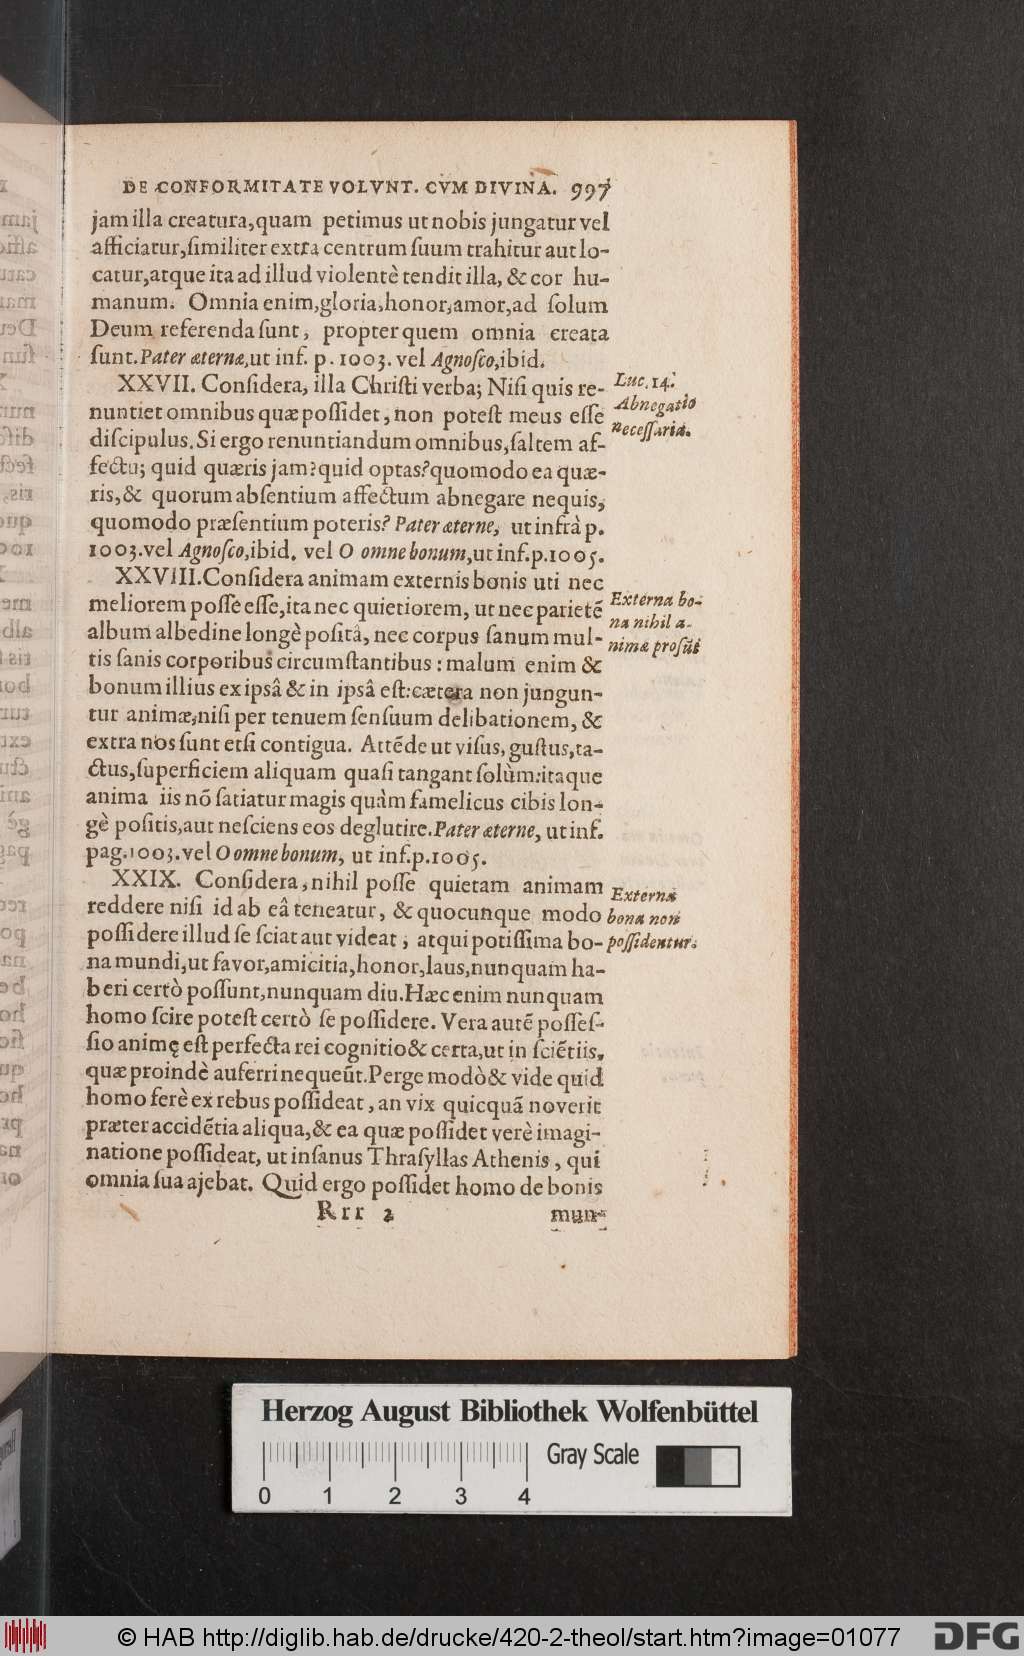 DE CONFORMITATE VOLVNT. CVM DIVINA. 997
jam illa creatura, quam petimus ut nobis jungatur vel
afficiatur, ſimiliter extra centrum ſuum trahitur aut lo-
catur, atque ita ad illud violentè tendit illa, & cor hu-
manum. Omnia enim, gloria, honor, amor, ad ſolum
Deum referenda ſunt, propter quem omnia creata
ſunt. Pater æternæ, ut inf. p. 1003. vel Agnoſco, ibid.
XXVII. Conſidera, illa Chriſti verba; Niſi quis re-
nuntiet omnibus quæ poſſidet, non poteſt meus eſſe
diſcipulus. Si ergo renuntiandum omnibus, ſaltem af-
fectu; quid quæris jam? quid optas? quomodo ea quæ-
ris, & quorum abſentium affectum abnegare nequis,
quomodo præſentium poteris? Pater æterne, ut infrà p.
1003. vel Agnoſco, ibid. vel O omne bonum, ut inf. p. 1005.
Luc. 14.
Abnegatio
neceſſaria.
XXVIII. Conſidera animam externis bonis uti nec
meliorem poſſe eſſe, ita nec quietiorem, ut nec parietē
album albedine longè poſitâ, nec corpus ſanum mul-
tis ſanis corporibus circumſtantibus : malum enim &
bonum illius ex ipsâ & in ipsâ eſt: cætera non jungun-
tur animæ, niſi per tenuem ſenſuum delibationem, &
extra nos ſunt etſi contigua. Attēde ut viſus, guſtus, ta-
ctus, ſuperficiem aliquam quaſi tangant ſolùm: itaque
anima iis nō ſatiatur magis quàm famelicus cibis lon-
gè poſitis, aut neſciens eos deglutire. Pater æterne, ut inf.
pag. 1003. vel O omne bonum, ut inf. p. 1005.
Externa bo-
na nihil a-
nimæ proſūt
XXIX. Conſidera, nihil poſſe quietam animam
reddere niſi id ab eâ teneatur, & quocunque modo
poſſidere illud ſe ſciat aut videat, atqui potiſſima bo-
na mundi, ut favor, amicitia, honor, laus, nunquam ha-
beri certò poſſunt, nunquam diu. Hæc enim nunquam
homo ſcire poteſt certò ſe poſſidere. Vera autē poſſeſ-
ſio animę eſt perfecta rei cognitio & certa, ut in ſciētiis,
quæ proindè auferri nequeūt. Perge modò & vide quid
homo ferè ex rebus poſſideat, an vix quicquā noverit
præter accidētia aliqua, & ea quæ poſſidet verè imagi-
natione poſſideat, ut inſanus Thraſyllas Athenis, qui
omnia ſua ajebat. Quid ergo poſſidet homo de bonis
Externa
bona non
poſſidentur.
Rrr 2 mun-
Herzog August Bibliothek Wolfenbüttel
Gray Scale
0 1 2 3 4
© HAB http://diglib.hab.de/drucke/420-2-theol/start.htm?image=01077
DFG